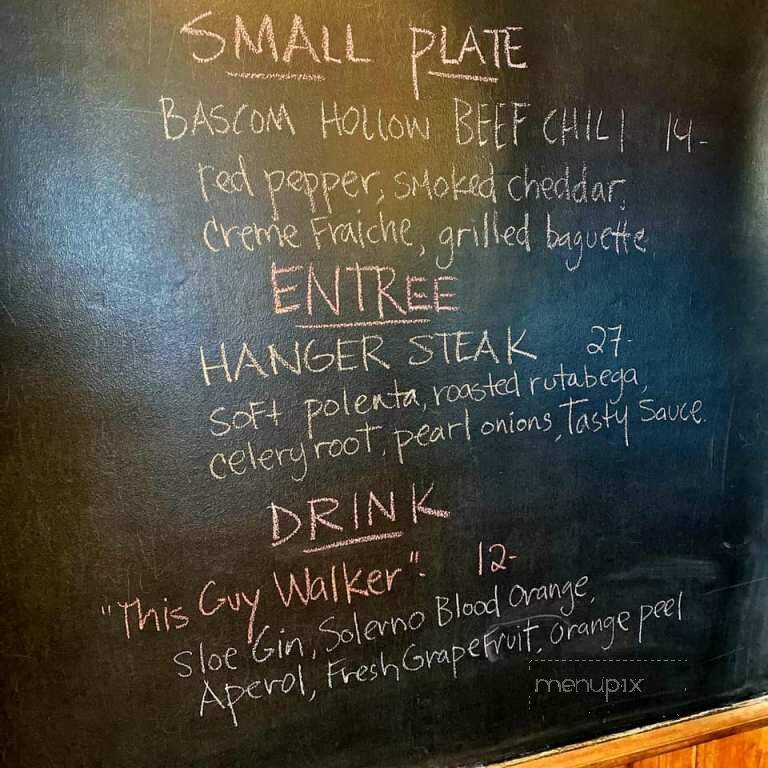 SMALL PLATE
BASCOM HOLLOW BEEF CHILI 14-
red pepper, smoked cheddar,
creme Fraiche, grilled baguette
ENTREE
HANGER STEAK 27-
soft polenta, roasted rutabega,
celery root, pearl onions, Tasty Sauce.
DRINK
"This Guy Walker"- 12-
Sloe Gin, Solerno Blood Orange,
Aperol, Fresh Grapefruit, orange peel
menupix